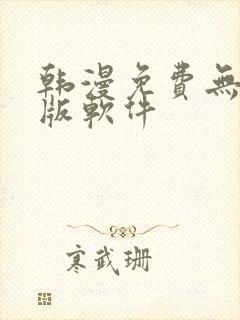 韩漫免費無
版軟件
寒武珊